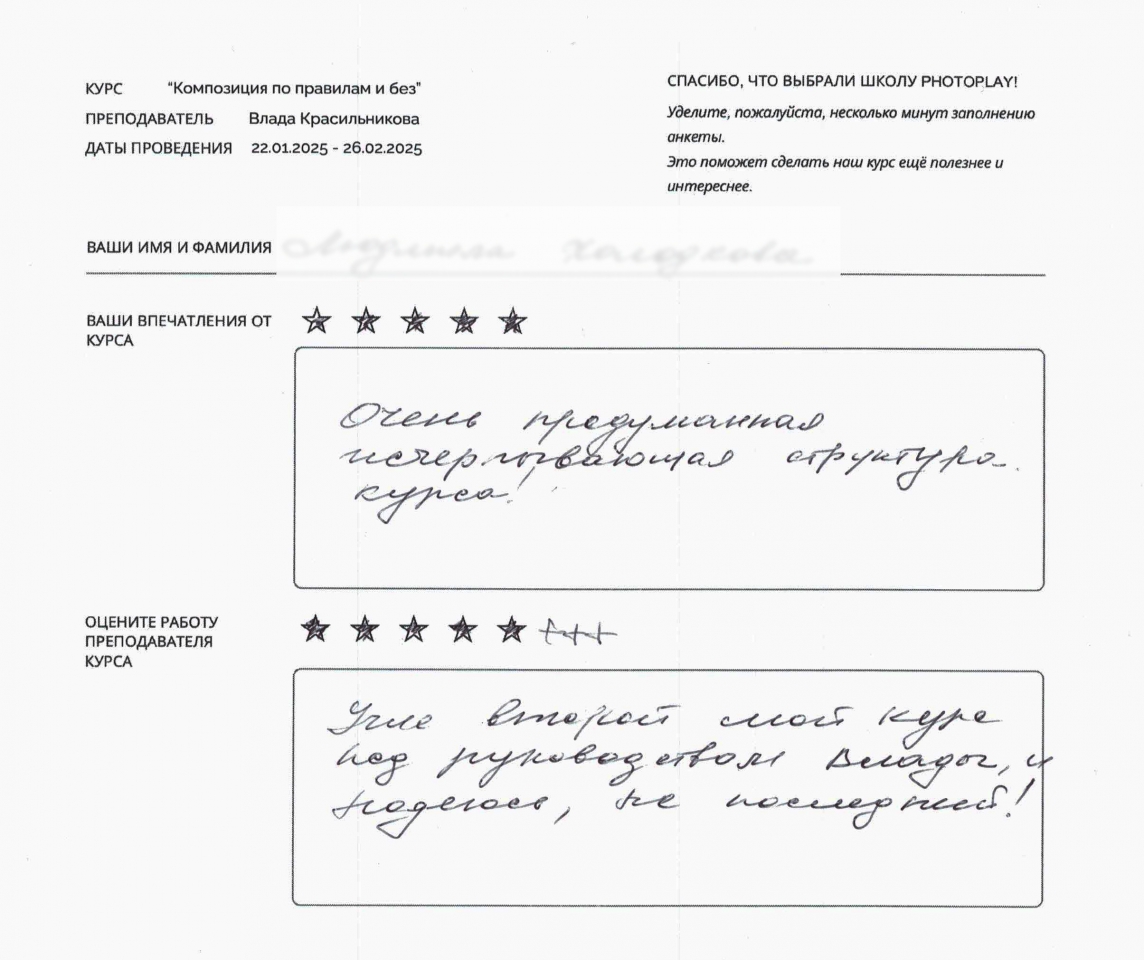 КУРС "Композиция по правилам и без"
ПРЕПОДАВАТЕЛЬ Влада Красильникова
ДАТЫ ПРОВЕДЕНИЯ 22.01.2025 - 26.02.2025
СПАСИБО, ЧТО ВЫБРАЛИ ШКОЛУ PHOTOPLAY!
Уделите, пожалуйста, несколько минут заполнению
анкеты.
Это поможет сделать наш курс ещё полезнее и
интереснее.
ВАШИ ИМЯ И ФАМИЛИЯ
ВАШИ ВПЕЧАТЛЕНИЯ ОТ
КУРСА
Очень продуманная
исчерпывающая структура
курса!
ОЦЕНИТЕ РАБОТУ
ПРЕПОДАВАТЕЛЯ
КУРСА
+++
Уже второй мой курс
под руководством Влады, и
надеюсь, не последний!